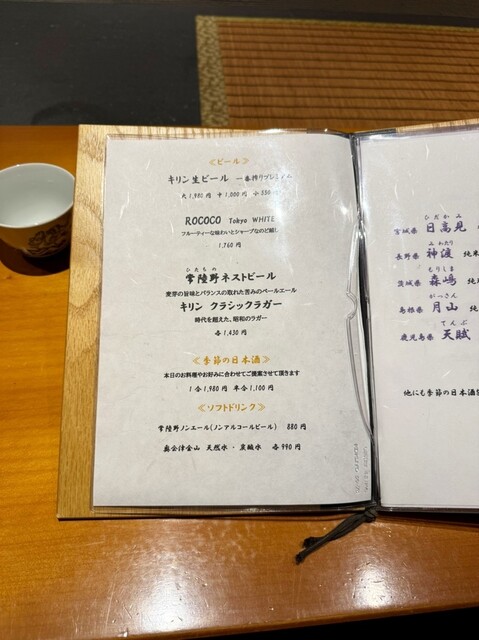 ≪ビール≫
キリン生ビール 一番搾りプレミアム
大1,980円 中1,000円 小550
ROCOCO Tokyo WHITE
フルーティーな味わいとシャープなのど越し
1,760円
ひたちの
常陸野ネストビール
麦芽の旨味とバランスの取れた苦みのペールエール
キリン クラシックラガー
時代を超えた、昭和のラガー
各1,430円
≪季節の日本酒≫
本日のお料理やお好みに合わせてご提案させて頂きます
1合1,980円 半合1,100円
≪ソフトドリンク≫
常陸野ノンエール(ノンアルコールビール) 880円
奥会津金山 天然水・炭酸水 各990円
ひだかみ
宮城県 日高見
みわたり
長野県 神渡 純米
もりしま
茨城県 森嶋 純
がっさん
島根県 月山 純米
てんぶ
鹿児島県 天賦
他にも季節の日本酒